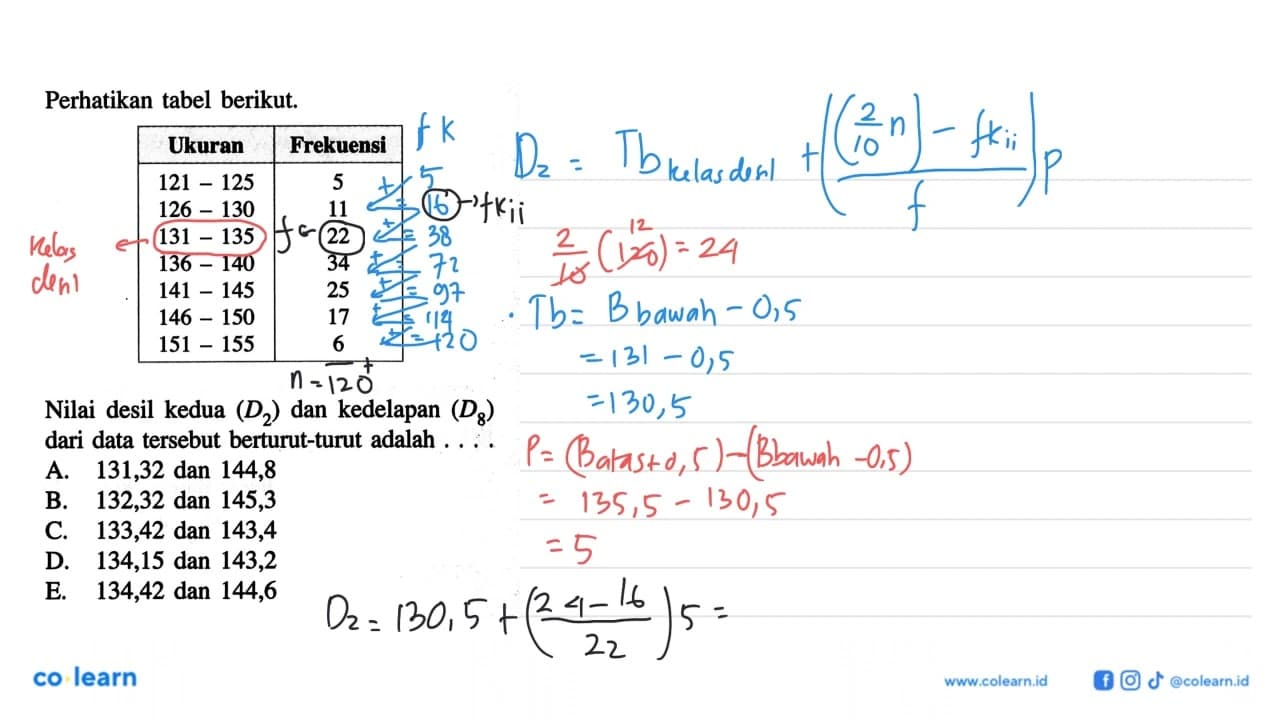 Perhatikan tabel berikut.
Ukuran Frekuensi fk
121 – 125 5 5
126 – 130 11 16 → fkii
131 – 135 f 22 38
136 – 140 34 72
141 – 145 25 97
146 – 150 17 114
151 – 155 6 120
Kelas
desil
n = 120
Nilai desil kedua (D₂) dan kedelapan (D₈)
dari data tersebut berturut-turut adalah . . . .
A. 131,32 dan 144,8
B. 132,32 dan 145,3
C. 133,42 dan 143,4
D. 134,15 dan 143,2
E. 134,42 dan 144,6
D₂ = Tb kelas desil + (((2/10 n) – fkii)/f) p
12
2/10 (120) = 24
· Tb = B bawah – 0,5
= 131 – 0,5
= 130,5
P = (Batas + 0,5) – (Bbawah – 0,5)
= 135,5 – 130,5
= 5
D₂ = 130,5 + ((24 – 16)/22) 5 =
co learn
www.colearn.id
@colearn.id